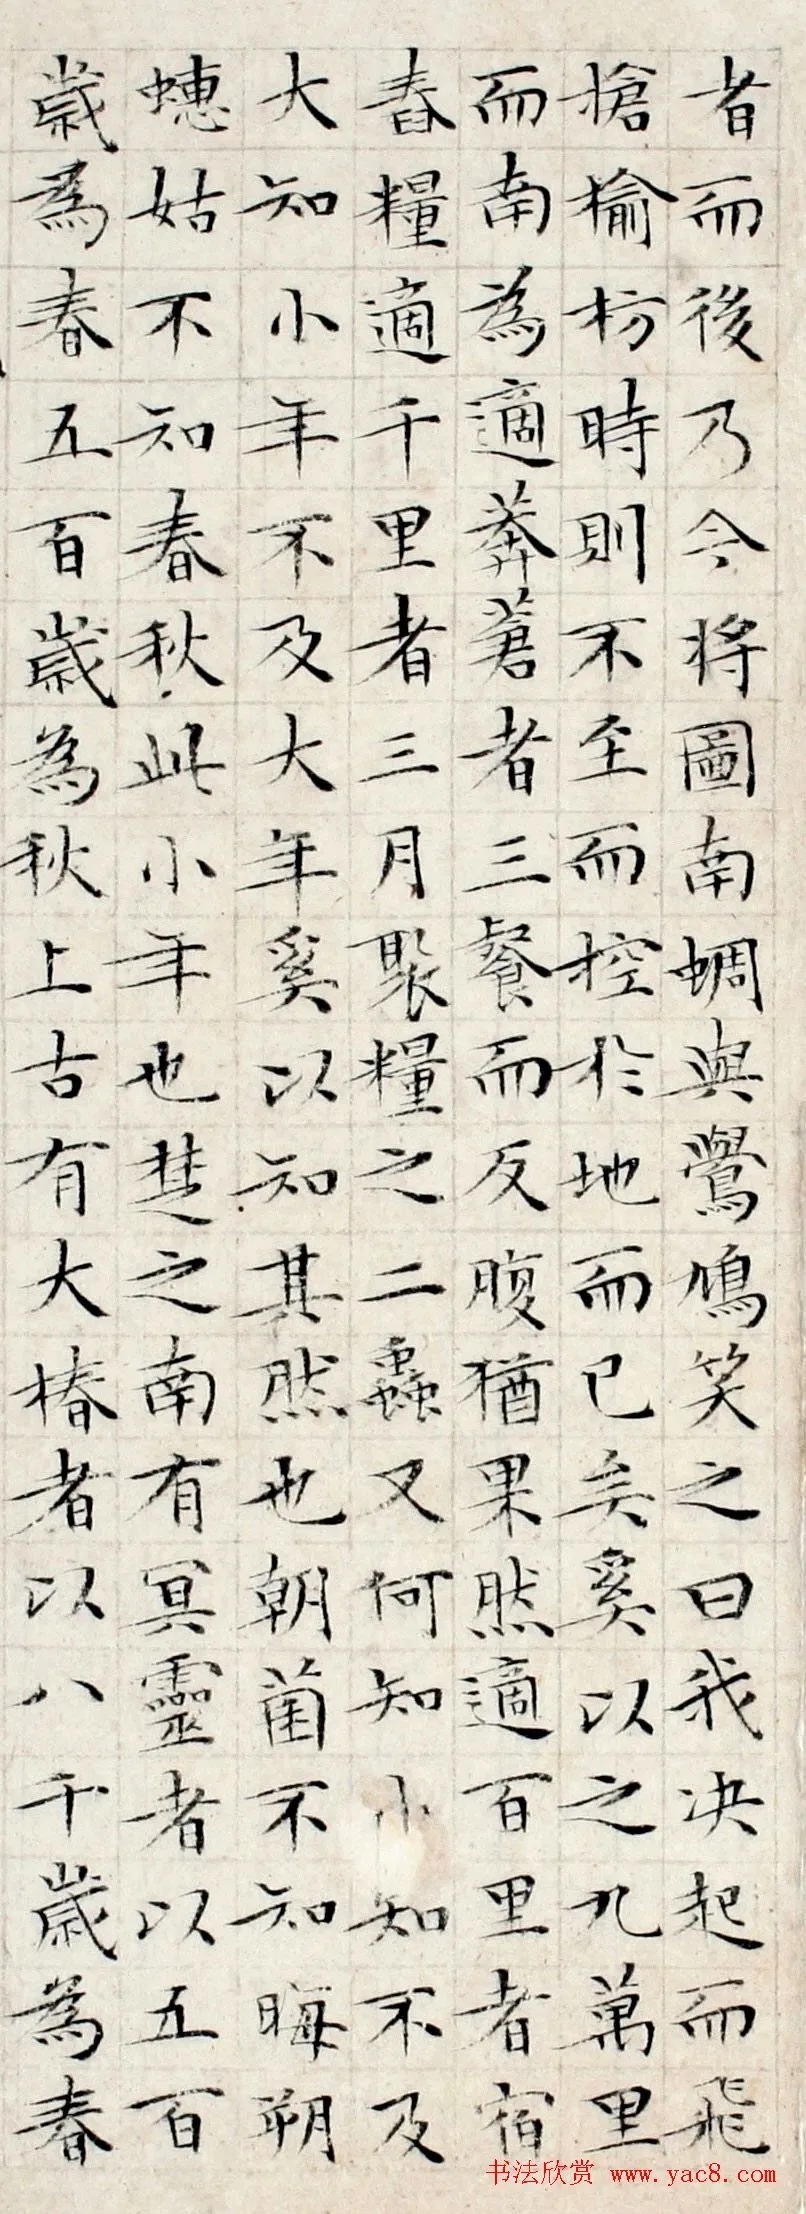 者而後乃今將圖南蜩與鷽鳩笑之曰我决起而飛
搶榆枋時則不至而控於地而已矣奚以之九萬里
而南為適莽蒼者三餐而反腹猶果然適百里者宿
舂糧適千里者三月聚糧之二蟲又何知小知不及
大知小年不及大年奚以知其然也朝菌不知晦朔
蟪蛄不知春秋此小年也楚之南有冥靈者以五百
歲為春五百歲為秋上古有大椿者以八千歲為春
书法欣赏 www.yac8.com